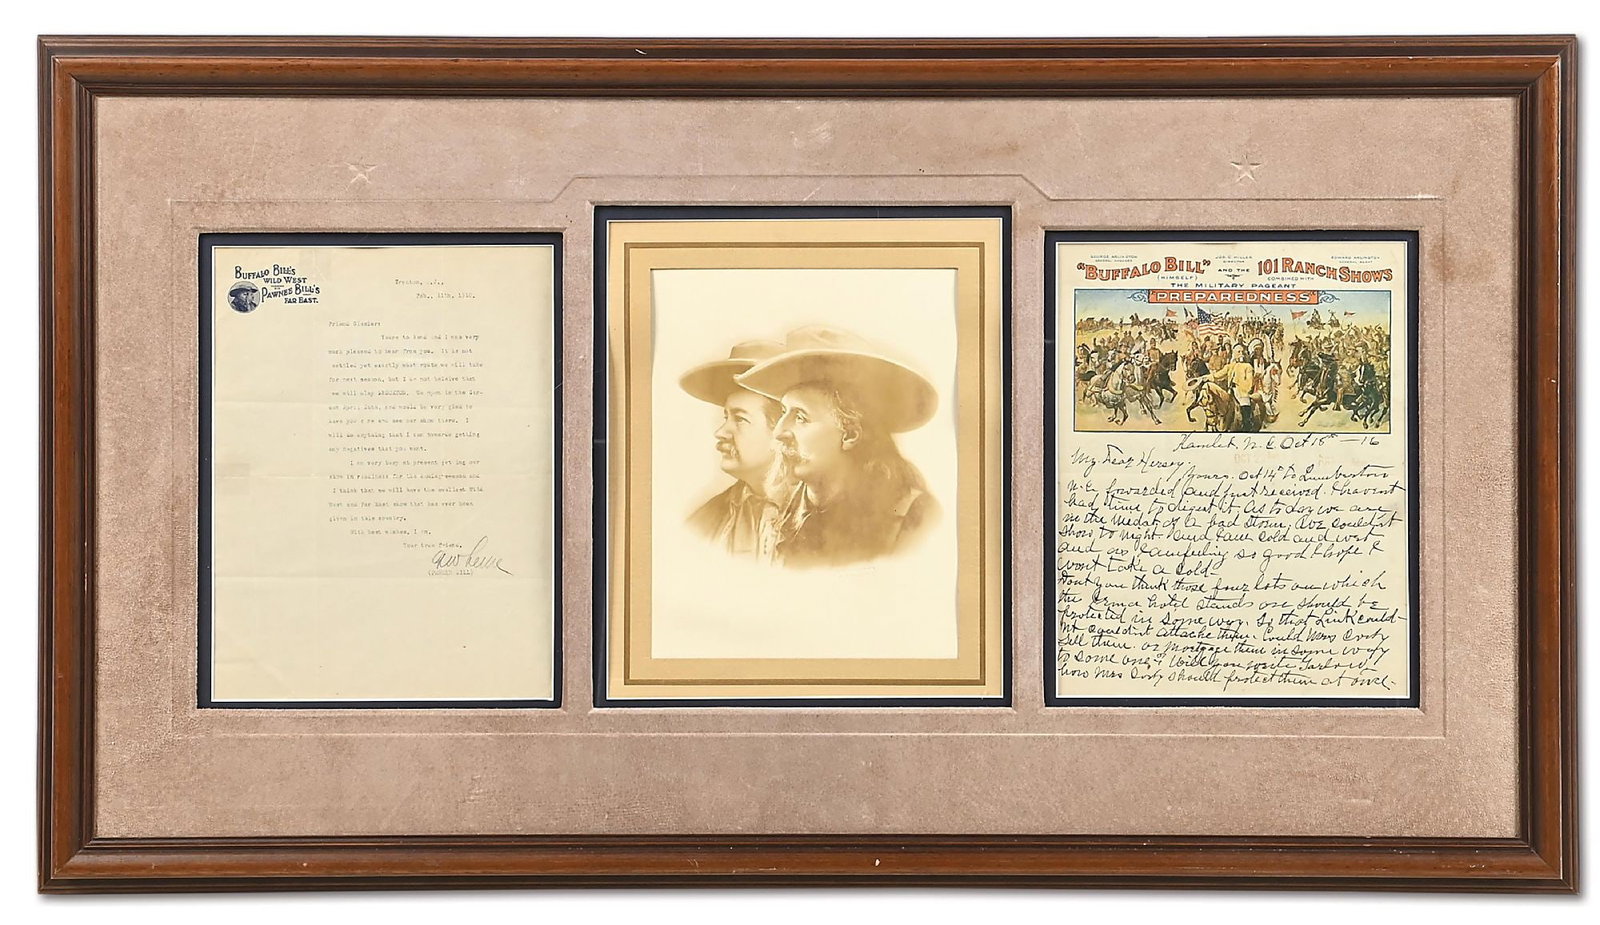 BUFFALO BILL'S
WILD WEST
PAWNEE BILL'S
FAR EAST.
Trenton, .J.,
Feb., 11th, 1912.
Friend
Yours to hand and I was very
much pleased to hear from you. It is not
settled yet exactly what route we will take
for next season, but I do not believe that
we will play. We open in the
April, and would be very glad to
have you and see our show there. I
will do anything that I can towards getting
any negatives that you want.
I am very busy at present getting our
show in readiness for the coming season and
I think that we will have the swellest Wild
West and Far East show that has ever been
given in this country.
With best wishes, I am,
Your true Friend,
(PAWNEE BILL)
GEORGE ARLINGTON
GENERAL MANAGER
JOS. C. MILLER
DIRECTOR
EDWARD ARLINGTON
GENERAL AGENT
"BUFFALO BILL" AND THE 101 RANCH SHOWS
(HIMSELF) COMBINED WITH
THE MILITARY PAGEANT
"PREPAREDNESS"
Hamlet, N.C. Oct 18th - 16
My Dear Hersey.
Yours. Oct 14th to Lumberton
N.C. forwarded and just received. I havent
had time to digest it. as today we are
in the midst of a bad storm, ave couldnt
show to night and I am cold and wet
and as I am feeling so good I hope I
wont take a cold-
Dont you think those four lots on which
the Irma hotel stands on should be
protected in some way. So that Link could-
nt attache them. Could Mrs Cody
sell them. or mortgage them in some way
to some one? Will you write
how Mrs Cody should protect them at once.